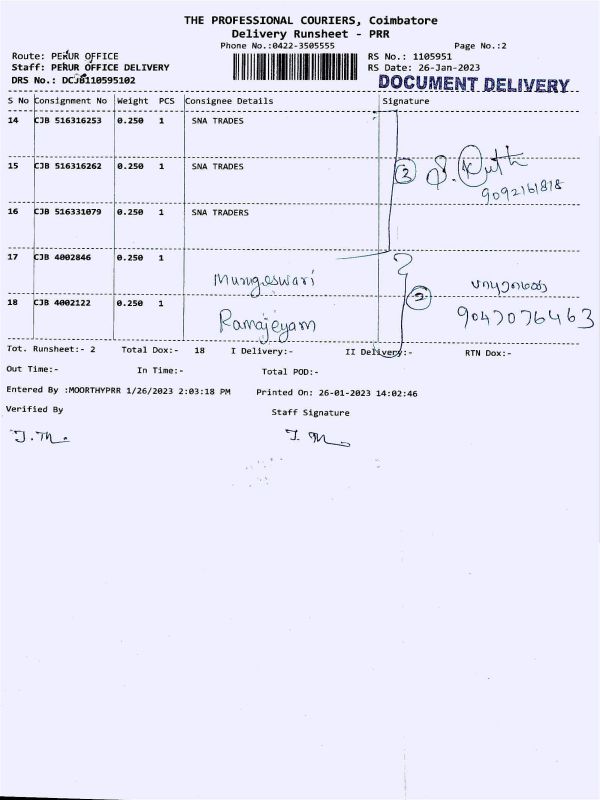 THE PROFESSIONAL COURIERS, Coimbatore
Delivery Runsheet - PRR
Phone No.:0422-3505555 Page No.:2
Route: PERUR OFFICE RS No.: 1105951
Staff: PERUR OFFICE DELIVERY RS Date: 26-Jan-2023
DRS No.: DCJB110595102 DOCUMENT DELIVERY
S No Consignment No Weight PCS Consignee Details Signature
14 CJB 516316253 0.250 1 SNA TRADES
15 CJB 516316262 0.250 1 SNA TRADES
9092161818
16 CJB 516331079 0.250 1 SNA TRADERS
17 CJB 4002846 0.250 1
Murgeswari
18 CJB 4002122 0.250 1
Ramajeyam 9047076463
Tot. Runsheet:- 2 Total Dox:- 18 I Delivery:- II Delivery:- RTN Dox:-
Out Time:- In Time:- Total POD:-
Entered By :MOORTHYPRR 1/26/2023 2:03:18 PM Printed On: 26-01-2023 14:02:46
Verified By Staff Signature